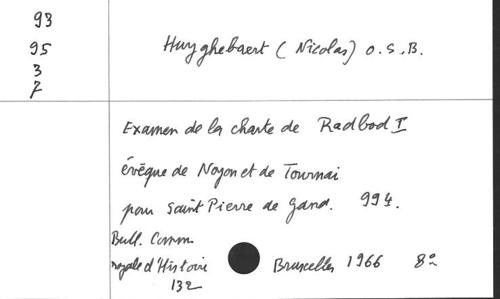 93
95
3
7
Huyghebaert (Nicolas) O.S.B.
Examen de la charte de Radbod I
évêque de Noyon et de Tournai
pour Saint Pierre de Gand. 994.
Bull. Comm.
royale d'Histoire Bruxelles 1966 8º
132